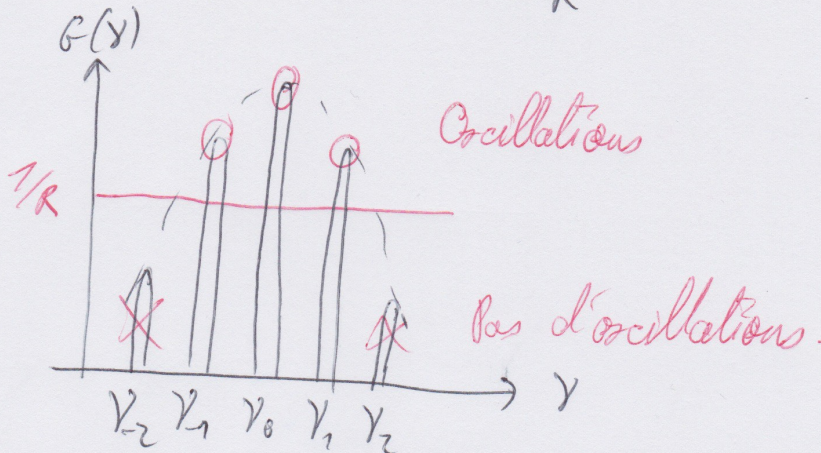 R
G(γ)
Oscillations
1/R
Pas d'oscillations.
γ₋₂ γ₋₁ γ₀ γ₁ γ₂ γ